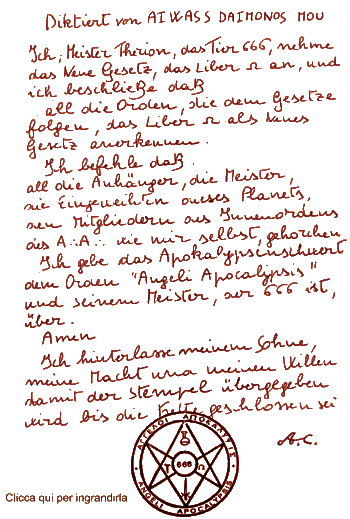 Diktiert von AIWASS DAIMONOS MOU
Ich, Meister Therion, das Tier 666, nehme
das Neue Gesetz, das Liber Ω an, und
ich beschließe daß
all die Orden, die dem Gesetze
folgen, das Liber Ω als Neues
Gesetz anerkennen.
Ich befehle daß
all die Anhänger, die Meister,
die Eingeweihten dieses Planets,
den Mitgliedern des Innenordens
des A∴A∴ wie mir selbst, gehorchen
Ich gebe das Apokalypsenschwert
dem Orden "Angeli Apocalipsis"
und seinem Meister, der 666 ist,
über.
Amen
Ich hinterlasse meinem Sohne,
meine Macht und meinen Willen
damit der Stempel übergegeben
wird bis die geschlossen sei
A.C.
ΑΓΓΕΛΟΙ ΑΠΟΚΑΛΥΨΙΣ
666
Ω
ANGELI APOCALYPSIS
Clicca qui per ingrandirla